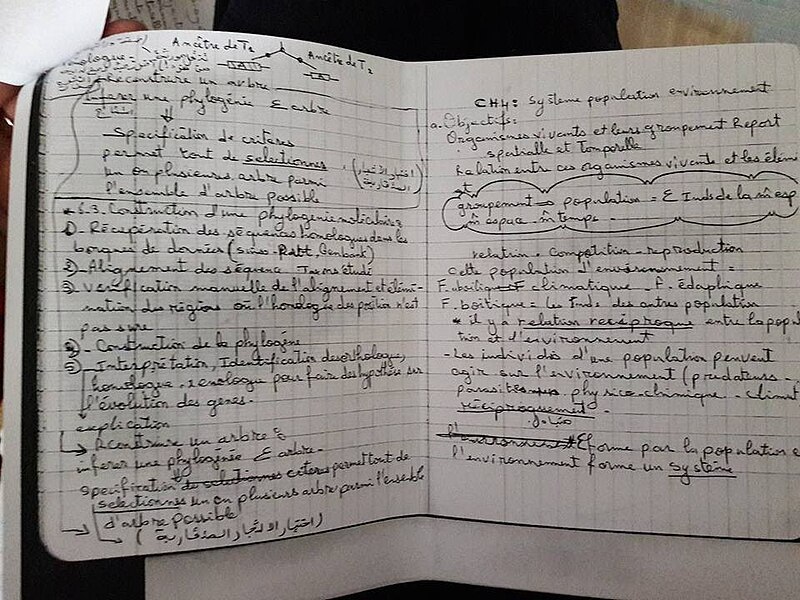 Ancêtre de T1
Ancêtre de T2
Reconstruire un arbre
Inferer une phylogénie & arbre
Specification de criteres
permet tout de selectionnes
un ou plusieurs arbre parmi
l'ensemble d'arbre possible
* 5.3. Construction d'une phylogenie moléculaire
1) - Récupération des séquences homologues dans les
borques de données (Suiss-Prott, Genbank)
2) - Alignement des séquence
3) verification manuelle de l'alignement et élémi-
nation des régions où l'homologie des position n'est
pas sure
4) - Construction de la phylogène
5) - Interprétation, Identification desorthologue,
homologue, xenologue pour faire des hypothèse sur
l'évolution des genes.
explication
Reconstruire un arbre :
inferer une phylogénie & arbre -
specification criteres permet tout de
selectionnes un ou plusieurs arbre parmi l'ensemble
d'arbre possible
CH4: Système population environnement
a. Objectifs:
Organismes vivants et leurs groupement Report
spatielle et Temporelle
Relation entre ces organismes vivants et les élém
et
groupement → population = Σ Inds de la m̂ esp
m̂ espace - m̂ temps -
relation - Compétition - reproduction
Cette population d'environnement =
climatique - F. édaphique
F. boitique = les Inds des autres population
* il y a relation reciproque entre la popul
tion et l'environnement
- Les individis d'une population peuvent
agir sur l'environnement (prédateurs -
parasit physico-chimique - climat
réciproquement -
E forme par la population e
l'environnement forme un système